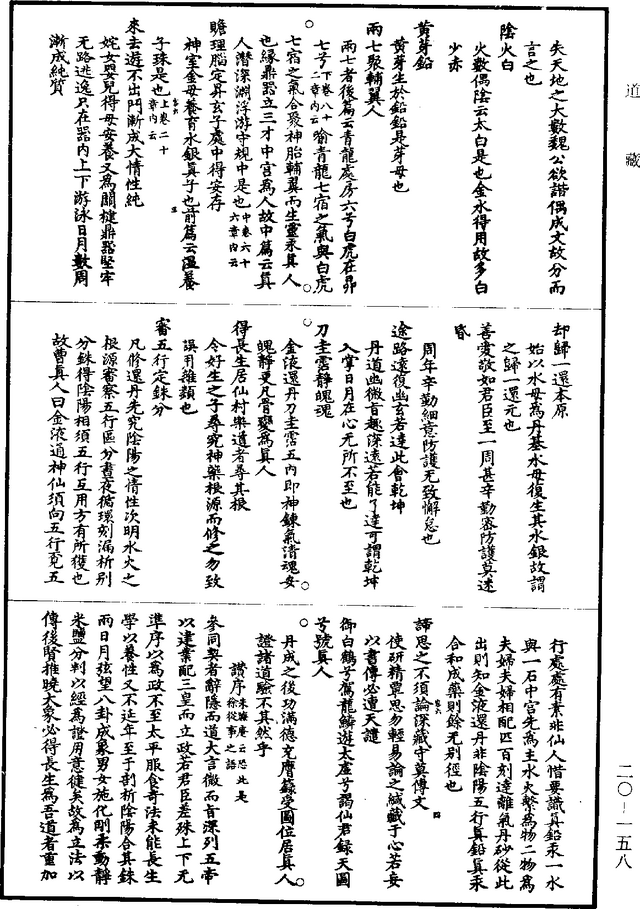 道藏
失天地之大數魏公欲諧偶成文故分而
言之也
陰火白
火數偶陰云太白是也金水得用故多白
少赤
黃芽鉛
黃芽生於鉛鉛是芽母也
兩七聚輔翼人
兩七者後篇云青龍處房六兮白虎在昴
七兮下卷八十二章內云喻青龍七宿之氣與白虎
七宿之氣合聚神胎輔翼而生靈汞真人
也緣鼎器立三才中宮為人故中篇云真
人潛深淵浮游守規中是也中卷六十六章內云
贍理腦定昇玄子處中得安存
神室金母養育水銀真子也前篇云溫養
子珠是也上卷二十章內云
來去遊不出門漸成大情性純
姹女嬰兒得母安養又為關楗鼎器堅牢
无路逃逸只在器內上下游泳日月數周
漸成純質
却歸一還本原
始以水母為丹基水母復生其水銀故謂
之歸一還元也
善愛敬如君臣至一周甚辛勤密防護莫迷
昏
周年辛勤細意防護无致懈怠也
途路遠復幽玄若達此會乾坤
丹道幽微音趣深遠若能了達可謂乾坤
入掌日月在心无所不至也
刀圭霑靜魄魂
金液還丹刀圭霑五內即神鍊氣清魂安
魄靜更尺骨變為真人
得長生居仙村樂道者尋其根
令好生之子尋究神藥根源而修之勿致
誤用雜類也
審五行定銖分
凡修還丹先究陰陽之情性次明水火之
根源審察五行區分晝夜循環刻漏析別
分銖得陰陽相須五行互用方有所獲也
故曹真人曰金液通神仙須向五行覓五
行處處有業非仙人惜要識真鉛汞一水
與一石中宮先為主水火繫為物二物為
夫婦夫婦相配匹百刻達離氣丹砂從此
出則知金液還丹非陰陽五行真鉛真汞
合和成藥則餘无別徑也
諦思之不須論深藏守莫傳文
使研精覃思勿輕易論之緘藏于心若妄
以書傳必遭天譴
御白鶴兮駕龍鱗遊太虛兮謁仙君錄天圖
兮號真人
丹成之後功滿德充膺籙受圖位居真人
證諸道驗不其然乎
讚序朱晦庵云恐此是徐從事之語
參同契者辭隱而道大言微而旨深列五帝
以建業配三皇而立政若君臣差殊上下无
準序以為政不至太平服食奇法未能長生
學以養性又不延年至于剖析陰陽合其銖
兩日月弦望八卦成象男女施化剛柔動靜
米鹽分判以經為證用意健矣故為立法以
傳後賢推曉大象必得長生為吾道者重加
二〇-一五八